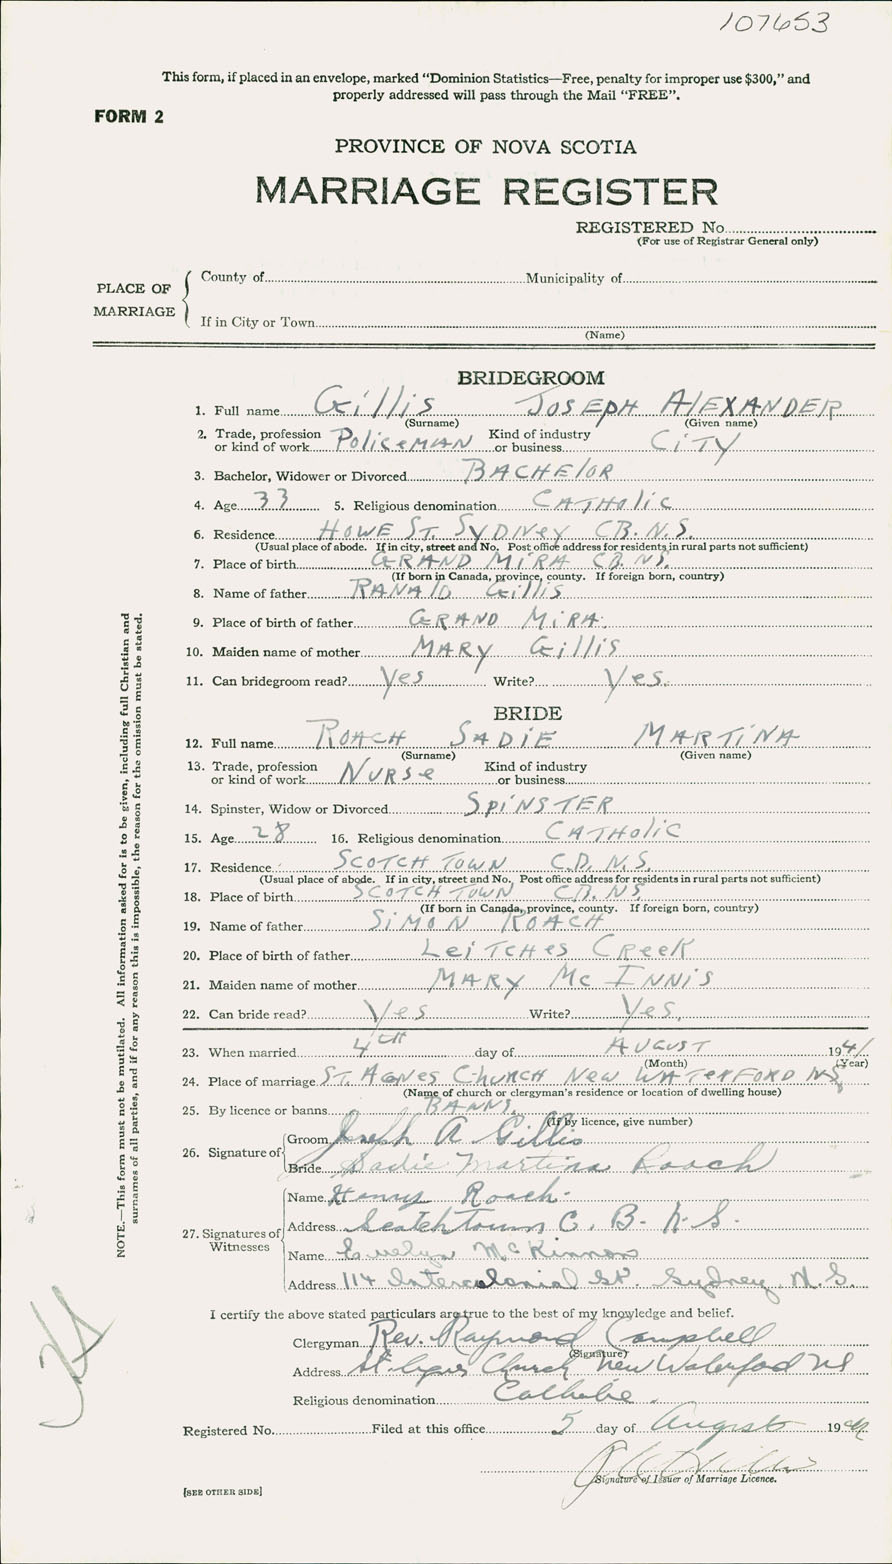 107653
This form, if placed in an envelope, marked "Dominion Statistics—Free, penalty for improper use $300," and
properly addressed will pass through the Mail "FREE".
FORM 2
PROVINCE OF NOVA SCOTIA
MARRIAGE REGISTER
REGISTERED No.
(For use of Registrar General only)
PLACE OF MARRIAGE
County of Municipality of
If in City or Town
(Name)
BRIDEGROOM
1. Full name Gillis Joseph Alexander
(Surname) (Given name)
2. Trade, profession or kind of work Policeman Kind of industry or business City
3. Bachelor, Widower or Divorced Bachelor
4. Age 33 5. Religious denomination Catholic
6. Residence Howe St. Sydney CB. N.S.
(Usual place of abode. If in city, street and No. Post office address for residents in rural parts not sufficient)
7. Place of birth Grand Mira CB. NS.
(If born in Canada, province, county. If foreign born, country)
8. Name of father Ranald Gillis
9. Place of birth of father Grand Mira.
10. Maiden name of mother Mary Gillis
11. Can bridegroom read? Yes Write? Yes.
BRIDE
12. Full name Roach Sadie Martina
(Surname) (Given name)
13. Trade, profession or kind of work Nurse Kind of industry or business
14. Spinster, Widow or Divorced Spinster
15. Age 28 16. Religious denomination Catholic
17. Residence Scotch Town C.B. N.S.
(Usual place of abode. If in city, street and No. Post office address for residents in rural parts not sufficient)
18. Place of birth Scotch Town CB. NS.
(If born in Canada, province, county. If foreign born, country)
19. Name of father Simon Roach
20. Place of birth of father Leitches Creek
21. Maiden name of mother Mary Mc Innis
22. Can bride read? Yes Write? Yes.
23. When married 4th day of August 1941
(Month) (Year)
24. Place of marriage St. Agnes Church New Waterford NS
(Name of church or clergyman's residence or location of dwelling house)
25. By licence or banns Banns.
(If by licence, give number)
26. Signature of
Groom Joseph A Gillis
Bride Sadie Martina Roach
27. Signatures of Witnesses
Name Roach.
Address Scotchtown C. B. N.S.
Name Evelyn McKinnon
Address 114 Intercolonial St. Sydney, N.S.
I certify the above stated particulars are true to the best of my knowledge and belief.
Clergyman Rev. Raymond Campbell
(Signature)
Address St. Agnes Church New Waterford NS
Religious denomination Catholic.
Registered No. Filed at this office 5 day of August 19
Signature of Issuer of Marriage Licence.
[SEE OTHER SIDE]
NOTE.—This form must not be mutilated. All information asked for is to be given, including full Christian and
surnames of all parties, and if for any reason this is impossible, the reason for the omission must be stated.